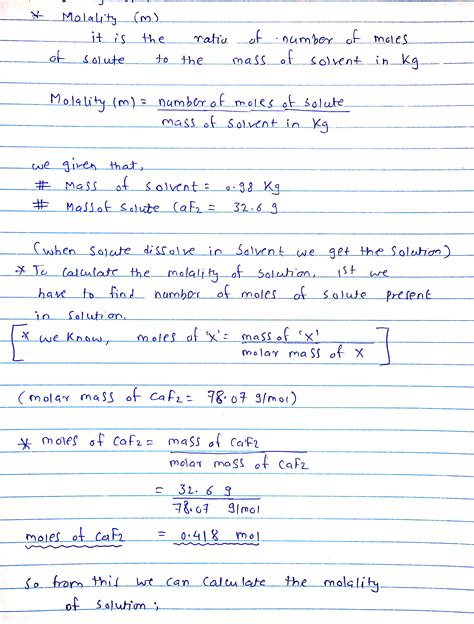 * Molality (m)
it is the ratio of number of moles
of solute to the mass of solvent in Kg
Molality (m) = number of moles of solute
mass of solvent in Kg
we given that,
# Mass of solvent = 0.98 Kg
# Mass of solute CaF2 = 32.6 g
(when solute dissolve in solvent we get the solution)
* To calculate the molality of solution, 1st we
have to find number of moles of solute present
in solution.
[* we know, moles of 'x' = mass of 'x'
molar mass of x]
(molar mass of CaF2 = 78.07 g/mol)
* moles of CaF2 = mass of CaF2
molar mass of CaF2
= 32.6 g
78.07 g/mol
moles of CaF2 = 0.418 mol
so from this we can calculate the molality
of solution;